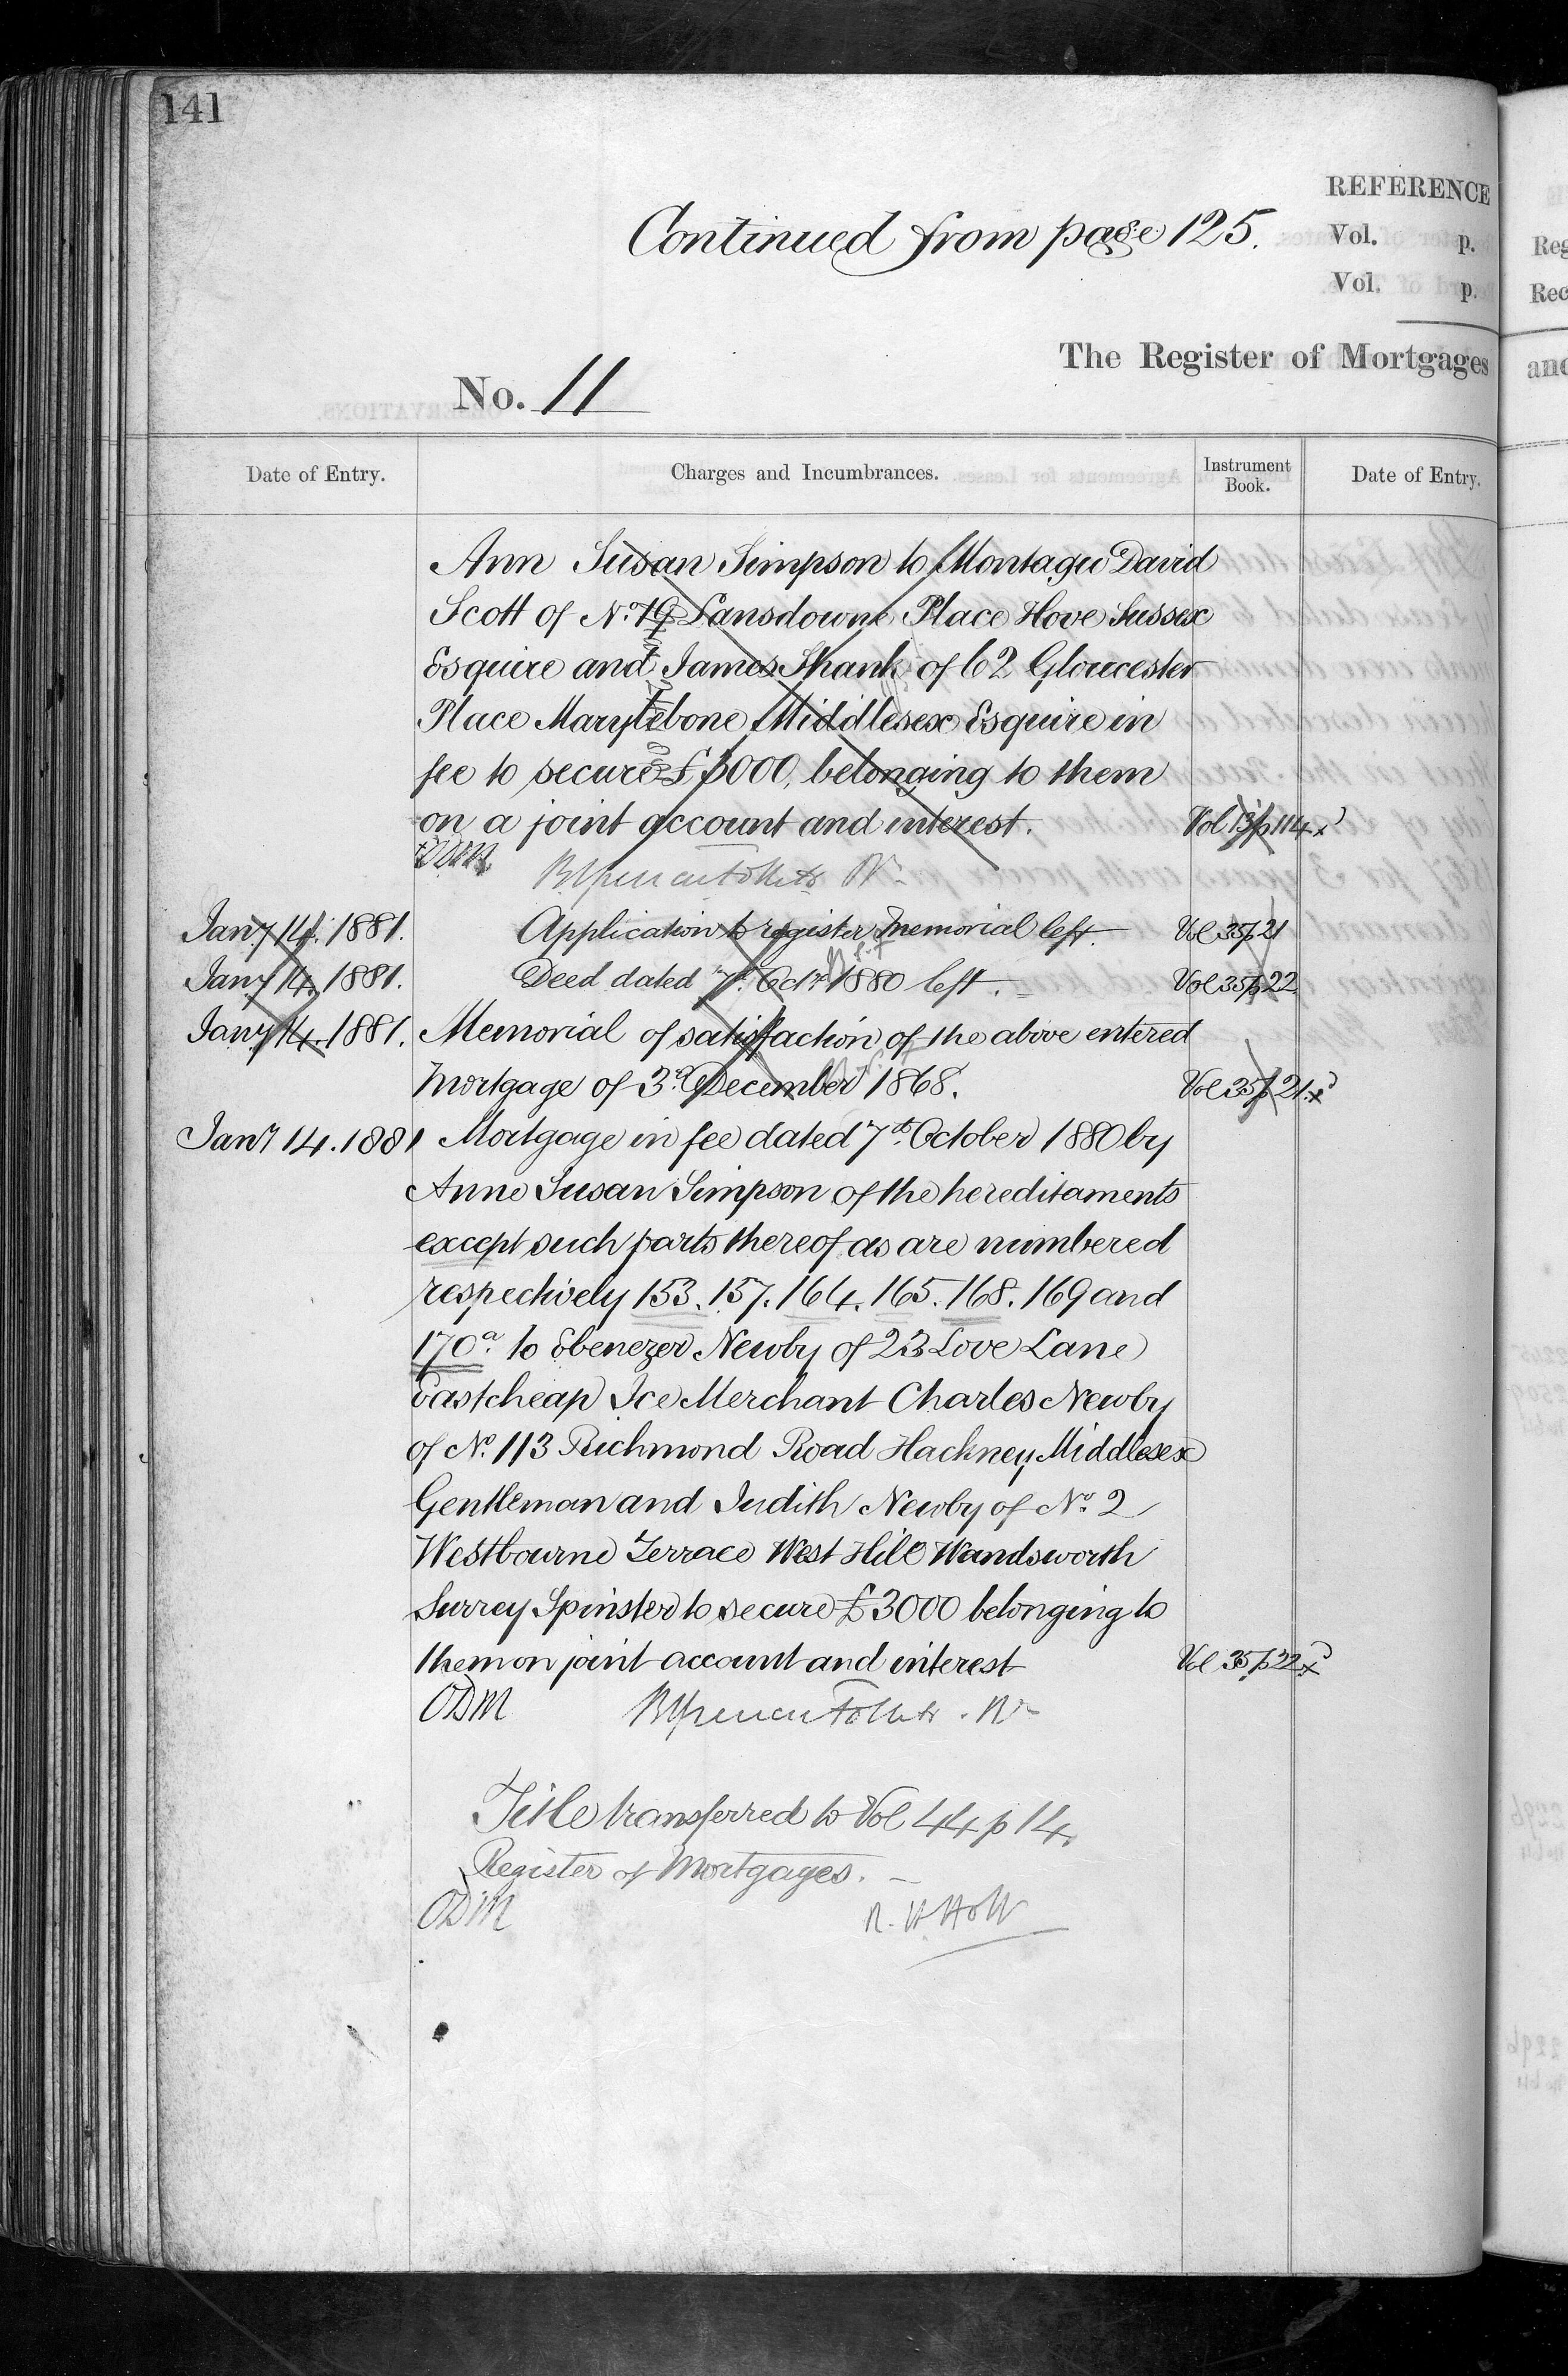 141
REFERENCE
Continued from page 125.
Vol. p.
Vol. p.
The Register of Mortgages
No. 11
Date of Entry. Charges and Incumbrances. Instrument Book. Date of Entry.
Ann Susan Simpson to Montagu David
Scott of No. 19 Lansdowne Place Hove Sussex
Esquire and James Shank of 62 Gloucester
Place Marylebone Middlesex Esquire in
fee to secure £3000, belonging to them
on a joint account and interest. Vol 13 p 114
ODM
Jany 14. 1881. Application to register memorial left. Vol 35 p 21
Jany 14. 1881. Deed dated 7th Octr 1880 left. Vol 35 p 22
Jany 14. 1881. Memorial of satisfaction of the above entered
Mortgage of 3rd December 1868. Vol 35 p 21
Jany 14. 1881 Mortgage in fee dated 7th October 1880 by
Anne Susan Simpson of the hereditaments
except such parts thereof as are numbered
respectively 153. 157. 164. 165. 168. 169 and
170a. to Ebenezer Newby of 23 Love Lane
Eastcheap Ice Merchant Charles Newby
of No. 113 Richmond Road Hackney Middlesex
Gentleman and Judith Newby of No. 2
Westbourne Terrace West Hill Wandsworth
Surrey Spinster to secure £3000 belonging to
them on joint account and interest Vol 35 p 22
ODM
Title transferred to Vol 44 p 14
Register of Mortgages.
ODM R. H. Holt
Reg
Rec
and